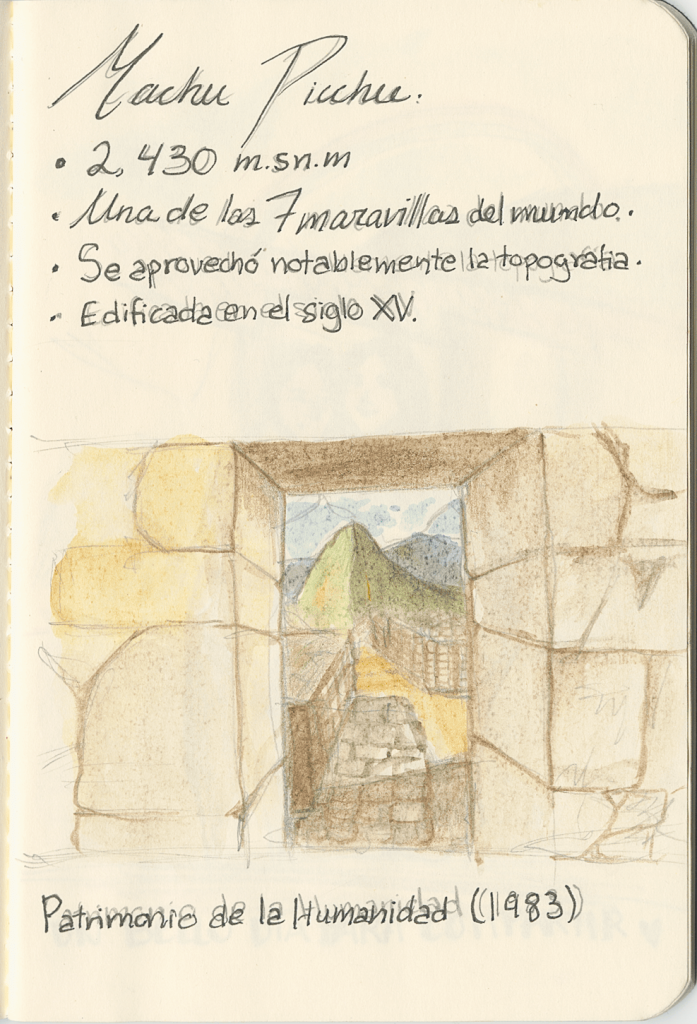 Machu Picchu.
• 2,430 m.sn.m
• Una de las 7 maravillas del mundo.
• Se aprovechó notablemente la topografia.
• Edificada en el siglo XV.
Patrimonio de la Humanidad (1983)